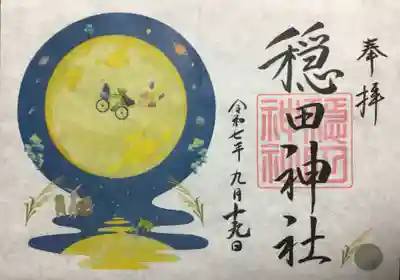 奉拝
穏田神社
穏田
神社
令和七年九月十九日